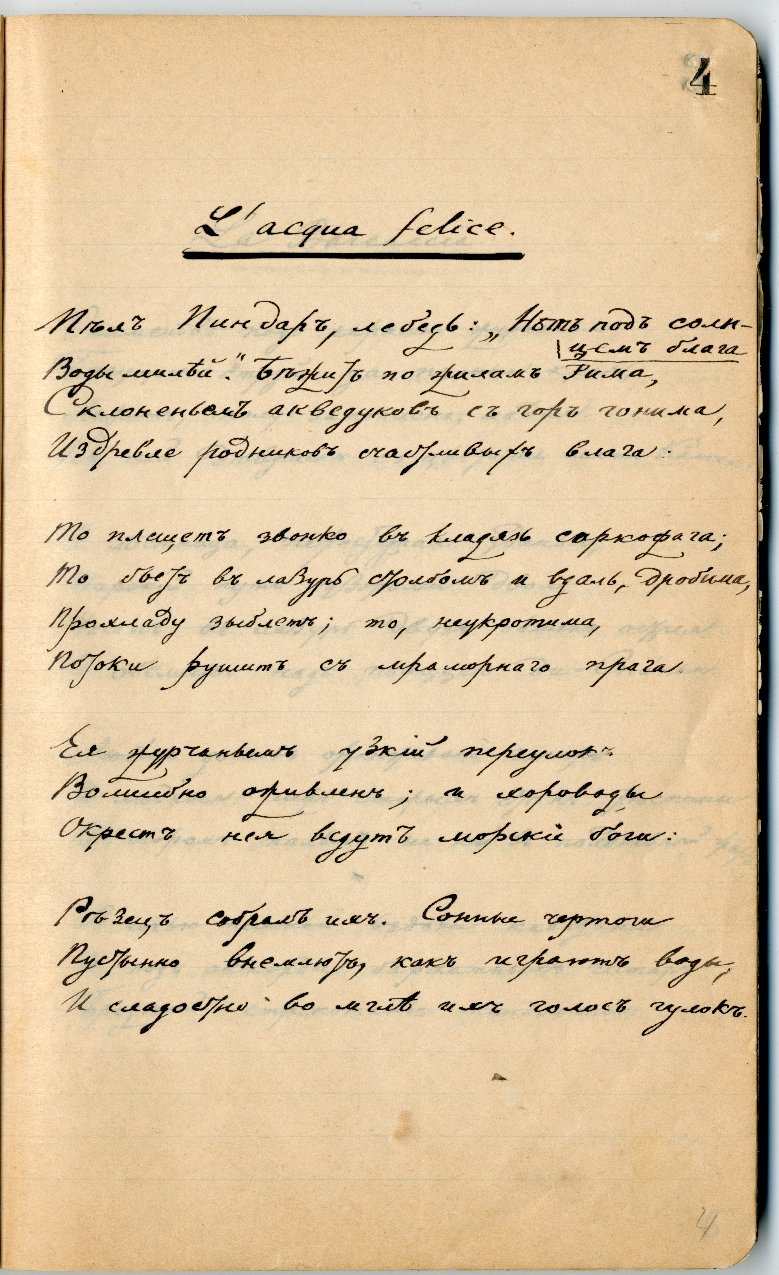 4
L'acqua felice.
Пѣлъ Пиндаръ, лебедь: „Нѣтъ подъ солн-
цемъ блага
Воды милѣй." Бѣжитъ по жиламъ Рима,
Склоненьемъ акведуковъ съ горъ гонима,
Издревле родниковъ счастливыхъ влага.
То плещетъ звонко въ кладязь саркофага;
То бьетъ въ лазурь столбомъ и вдаль, дробима,
Прохладу зыблетъ; то, неукротима,
Потоки рушитъ съ мраморнаго прага.
Ея журчаньемъ узкій переулокъ
Волшебно оживленъ; и хороводы
Окрестъ нея ведутъ морскіе боги:
Рѣзецъ собралъ ихъ. Сонные чертоги
Пустынно внемлютъ, какъ играютъ воды,
И сладостно во мглѣ ихъ голосъ гулокъ.
4